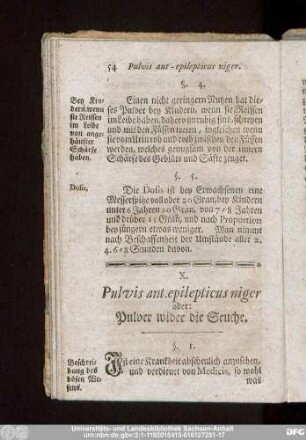 54 Pulvis ant-epilepticus niger.
§. 4.
Bey Kindern, wenn sie Reissen im Leibe von angehäuffter Schärfe haben.
Einen nicht geringern Nutzen hat dieses Pulver bey Kindern, wenn sie Reissen
im Leibe haben, daher unruhig sind, schreyen
und mit den Füssen treten, ingleichen wenn
sie vom Urin roth und wch zwischen den Füssen
werden, welches genugsam von der innern
Schärfe des Geblüts und Säffte zeuget.
§. 5.
Dosis.
Die Dosis ist bey Erwachsenen eine
Messerspitze voll oder 20 Gran, bey Kindern
unter 6 Jahren 10 Gran, von 7-8 Jahren
und drüber 15 Gran, und nach Proportion
bey jüngern etwas weniger. Man nimmt
nach Beschaffenheit der Umstände aller 2.
4. 6-8 Stunden davon.
X.
Pulvis ant.epilepticus niger
oder:
Pulver wider die Seuche.
§. 1.
Beschreibung des bösen Wesens.
Ist eine Kranckheit abscheulich anzusehen,
und verdienet von Medicis, so wohl
was
Universitäts- und Landesbibliothek Sachsen-Anhalt
urn:nbn:de:gbv:3:1-1192015415-616127251-17
DFG